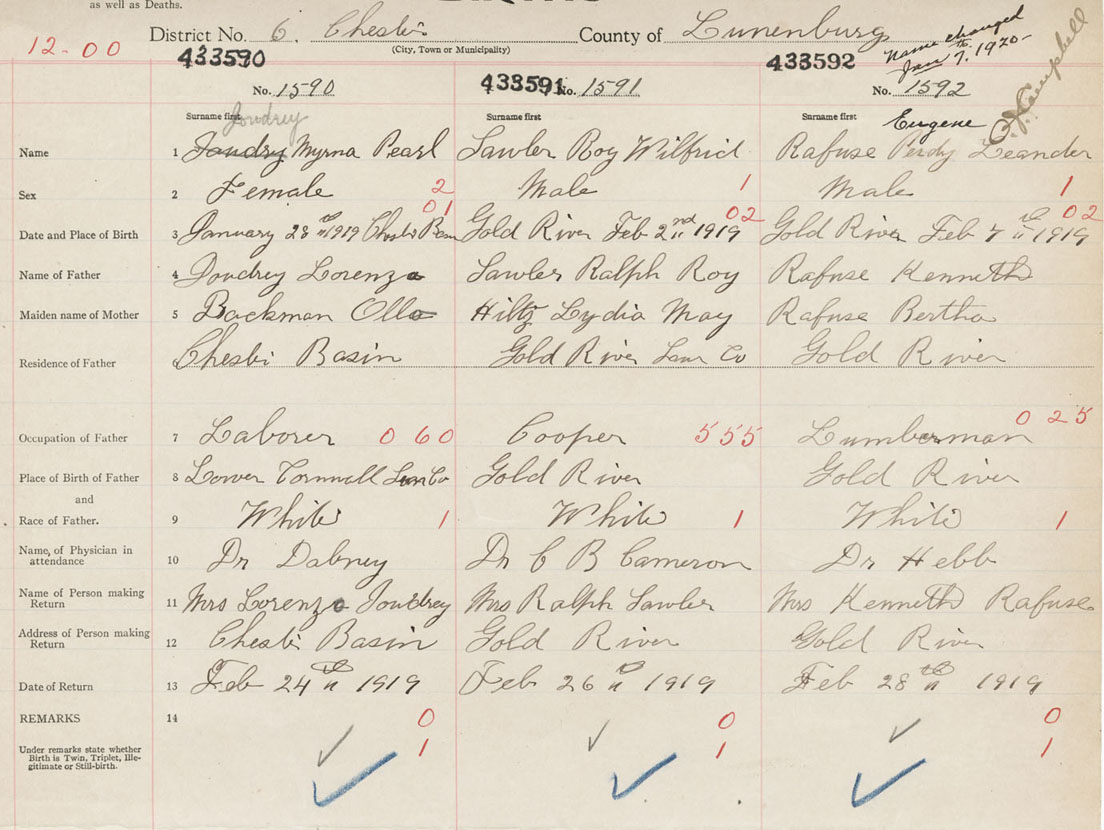 as well as Deaths.
12-00
District No. 6. Chester County of Lunenburg
(City, Town or Municipality)
Name changed
Jan 7th. 1920-
Campbell
433590 433591 433592
No. 1590 No. 1591 No. 1592
Surname first Surname first Surname first
Joudrey Eugene
Name 1 Joudry Myrna Pearl Lawler Roy Wilfrid Rafuse Perdy Leander
Sex 2 Female 2 Male 1 Male 1
01 02 02
Date and Place of Birth 3 January 28th 1919 Chester Basin Gold River Feb 2nd 1919 Gold River Feb 7th 1919
Name of Father 4 Joudrey Lorenzo Lawler Ralph Roy Rafuse Kenneth
Maiden name of Mother 5 Backman Olla Hiltz Lydia May Rafuse Bertha
Residence of Father Chester Basin Gold River Lun Co Gold River
Occupation of Father 7 Laborer 060 Cooper 555 Lumberman 025
Place of Birth of Father 8 Lower Cornwall Lun Co Gold River Gold River
and
Race of Father. 9 White 1 White 1 White 1
Name, of Physician in
attendance 10 Dr Dabney Dr C B Cameron Dr Hebb
Name of Person making
Return 11 Mrs Lorenzo Joudrey Mrs Ralph Lawler Mrs Kenneth Rafuse
Address of Person making
Return 12 Chester Basin Gold River Gold River
Date of Return 13 Feb 24th 1919 Feb 26th 1919 Feb 28th 1919
REMARKS 14 0 0 0
Under remarks state whether
Birth is Twin, Triplet, Ille-
gitimate or Still-birth. 1 1 1